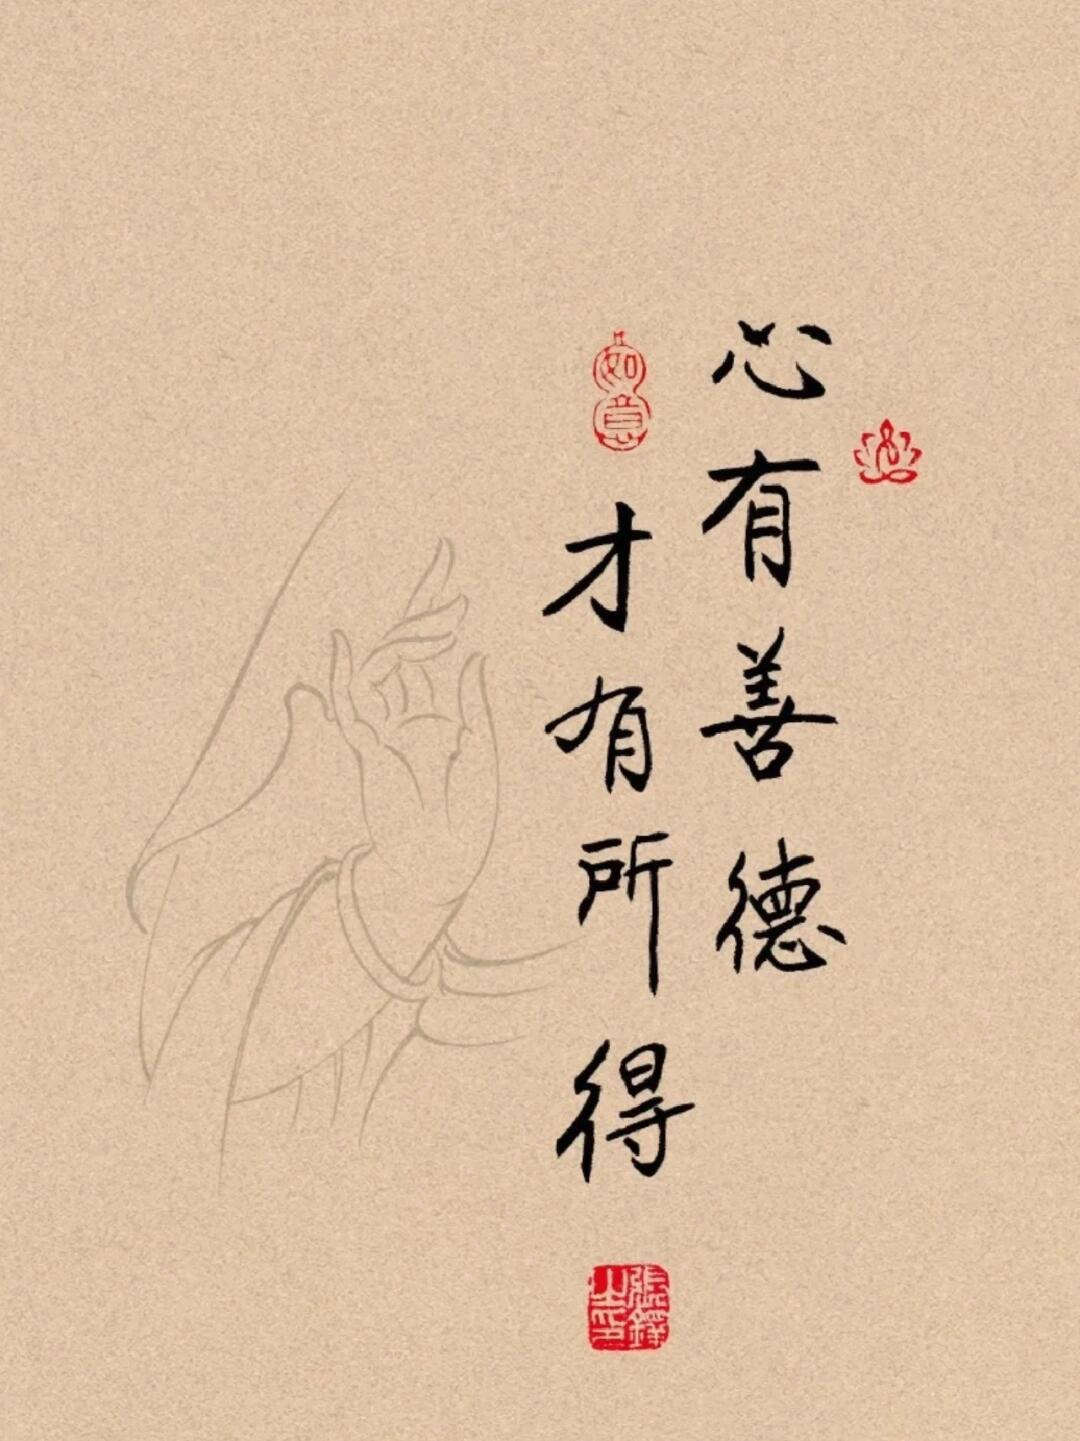 心有善德
才有所得
如意
張鐸之印